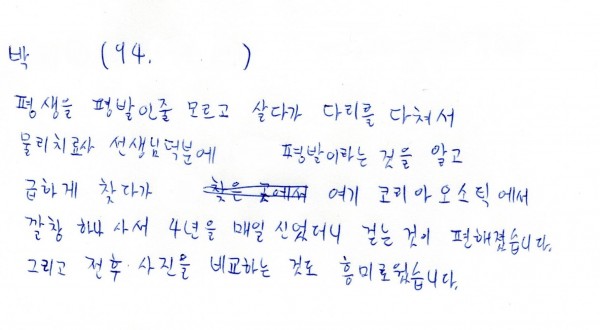 박 (94. )
평생을 평발인줄 모르고 살다가 다리를 다쳐서
물리치료사 선생님덕분에 평발이라는 것을 알고
급하게 찾다가 찾은 곳에서 여기 코리아오소틱에서
깔창 하나 사서 4년을 매일 신었더니 걷는 것이 편해졌습니다.
그리고 전후 사진을 비교하는 것도 흥미로웠습니다.